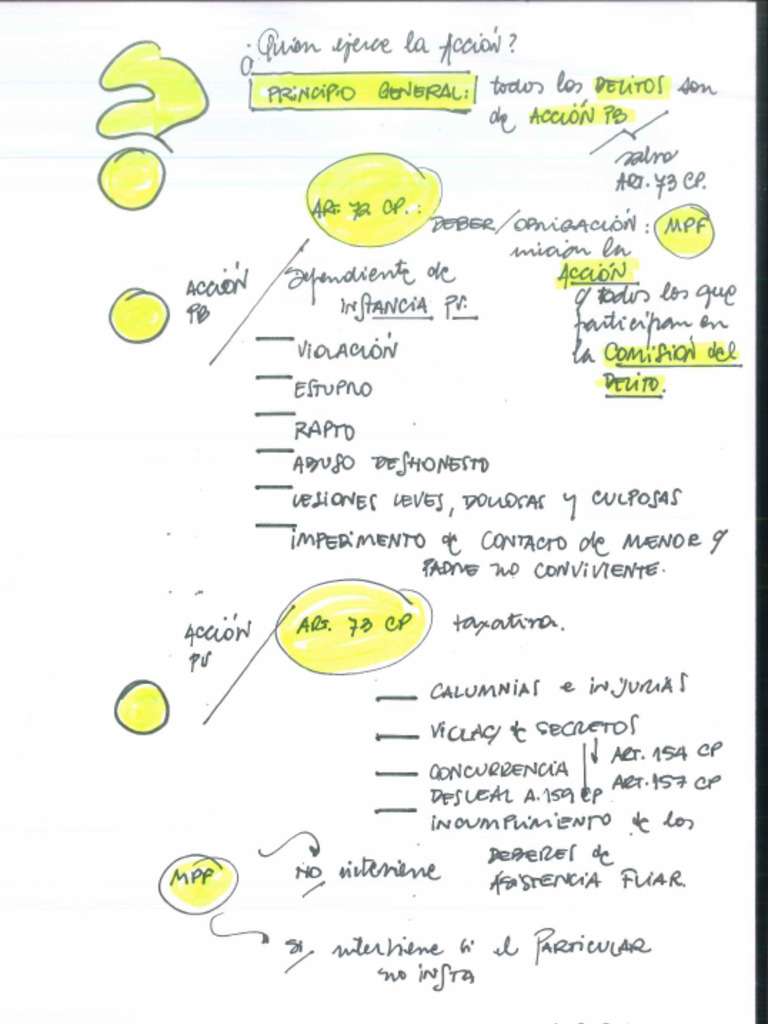 ¿Quien ejerce la Acción?
PRINCIPIO GENERAL: todos los DELITOS son
de ACCIÓN PB
salvo
ART. 73 CP.
ART. 72 CP.: DEBER/OBLIGACIÓN: MPF
iniciar la
ACCIÓN
y todos los que
participan en
la COMISIÓN del
DELITO.
ACCIÓN
PB
dependiente de
INSTANCIA PV.
VIOLACIÓN
ESTUPRO
RAPTO
ABUSO DESHONESTO
LESIONES LEVES, DOLOSAS y CULPOSAS
IMPEDIMENTO de CONTACTO de MENOR y
PADRE NO CONVIVIENTE.
ACCIÓN
PV
ART. 73 CP taxativa.
CALUMNIAS e INJURIAS
VIOLAC/ de SECRETOS
ART. 154 CP
ART. 157 CP
CONCURRENCIA
DESLEAL A.159 CP
INCUMPLIMIENTO de los
DEBERES de
ASISTENCIA FLIAR.
MPF
NO interviene
SI interviene si el PARTICULAR
no INSTA